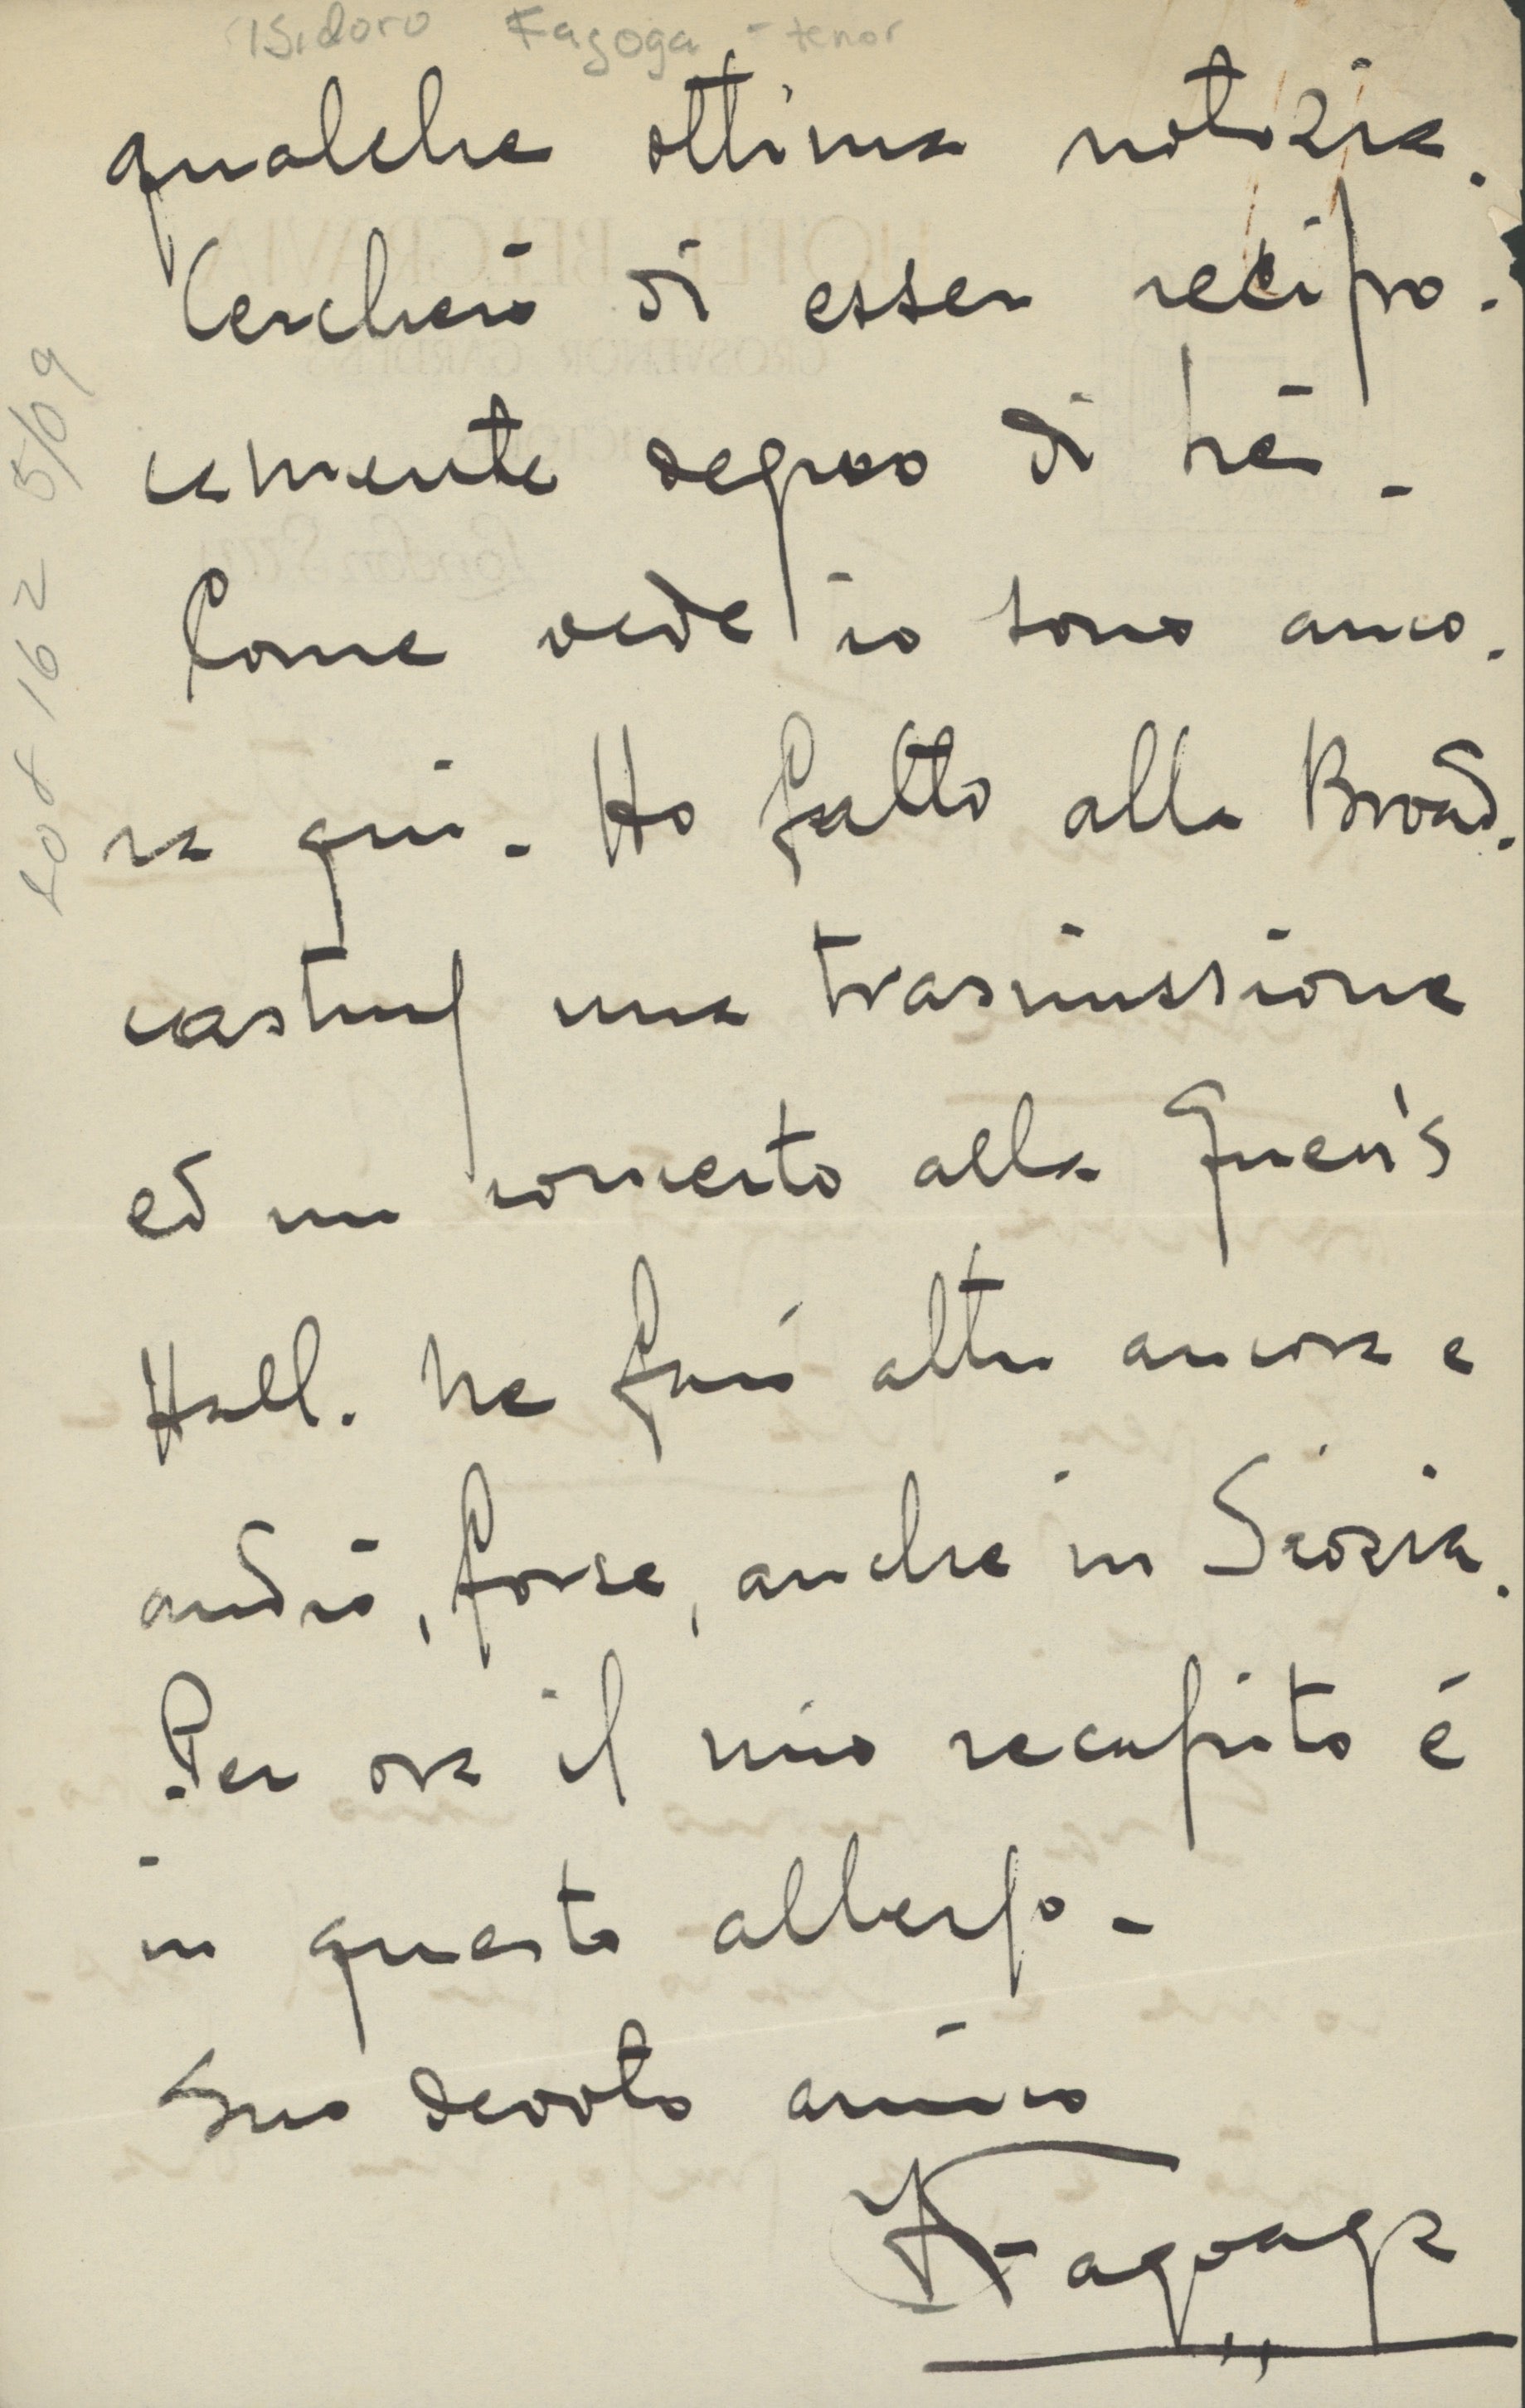 Isidoro Fagoga - tenor
qualche ottima notizia.
Cercherò di esser recipro-
camente degno di Lei -
Come vede io sono anco-
ra qui - Ho fatto alla Broad-
casting una trasmissione
ed un concerto alla Queen's
Hall. Ne farò altri ancora e
andrò, forse, anche in Scozia.
Per ora il mio recapito é
in questo albergo -
Suo devoto amico
Fagoaga
HOTEL BELGRAVIA
GROSVENOR GARDENS
London S.W.1